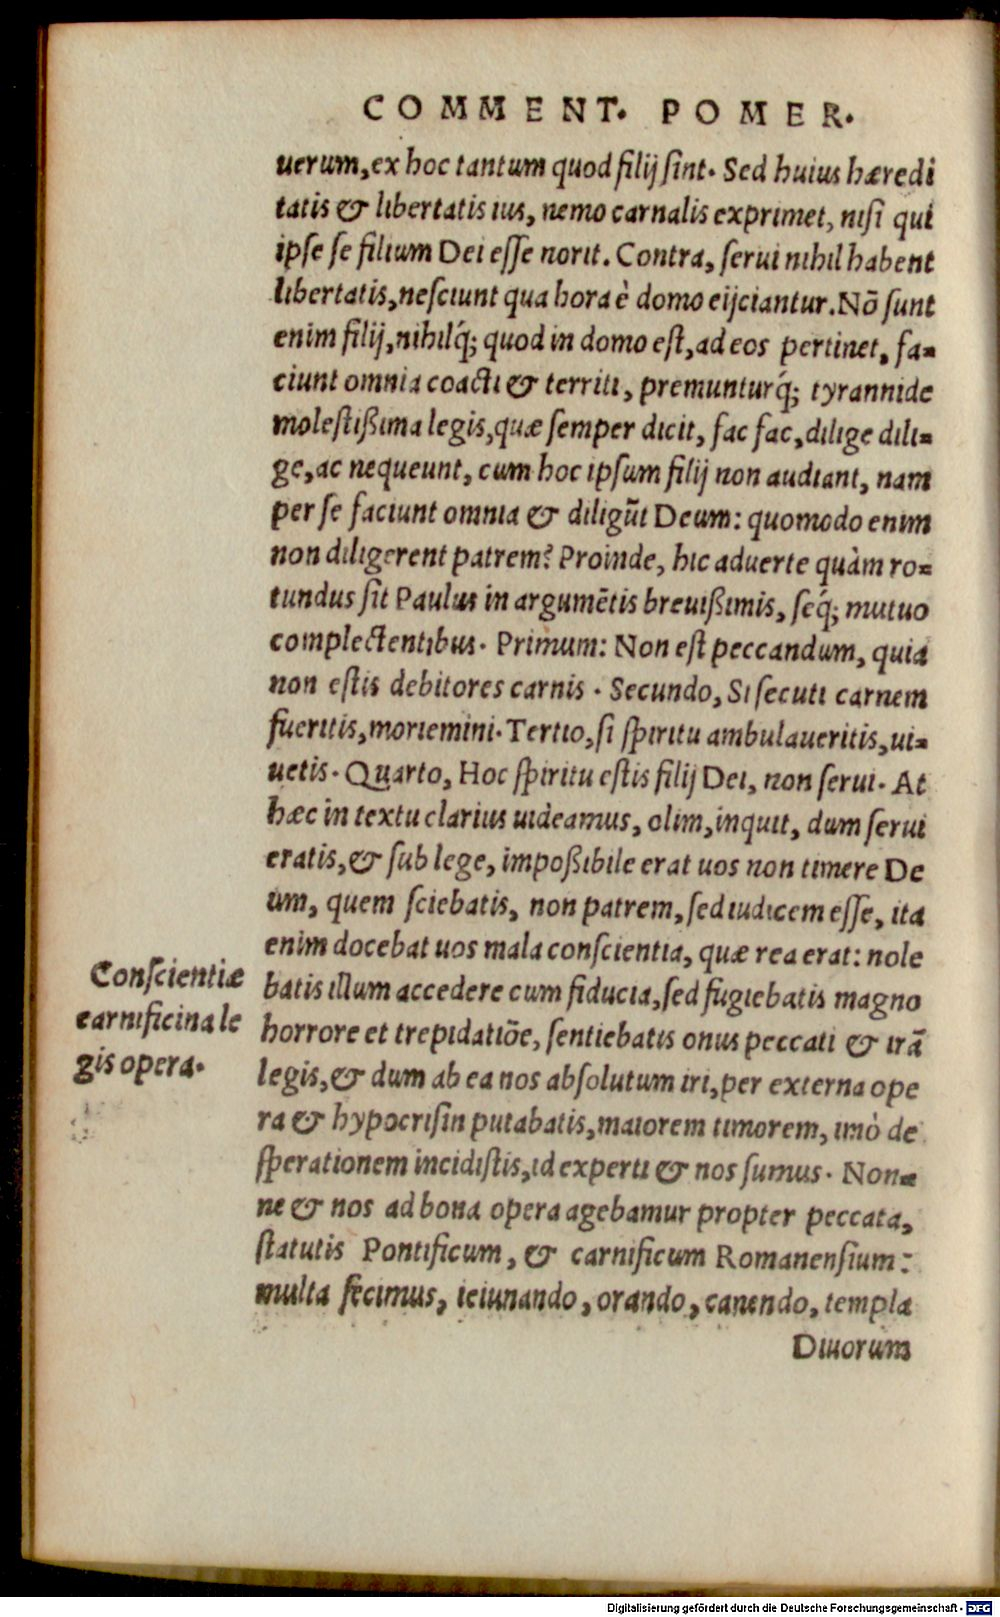 COMMENT. POMER.
uerum, ex hoc tantum quod filij ſint. Sed huius hæredi
tatis & libertatis ius, nemo carnalis exprimet, niſi qui
ipſe ſe filium Dei eſſe norit. Contra, ſerui nihil habent
libertatis, neſciunt qua hora è domo eijciantur. Nō ſunt
enim filij, nihilq́; quod in domo eſt, ad eos pertinet, fa-
ciunt omnia coacti & territi, premunturq́; tyrannide
moleſtißima legis, quæ ſemper dicit, fac fac, dilige dili-
ge, ac nequeunt, cum hoc ipſum filij non audiant, nam
per ſe faciunt omnia & diligūt Deum: quomodo enim
non diligerent patrem? Proinde, hic aduerte quàm ro-
tundus ſit Paulus in argumētis breuißimis, ſeq́; mutuo
complectentibus. Primum: Non eſt peccandum, quia
non eſtis debitores carnis. Secundo, Si ſecuti carnem
fueritis, moriemini. Tertio, ſi ſpiritu ambulaueritis, ui-
uetis. Quarto, Hoc ſpiritu eſtis filij Dei, non ſerui. At
hæc in textu clarius uideamus, olim, inquit, dum ſerui
eratis, & ſub lege, impoßibile erat uos non timere De
um, quem ſciebatis, non patrem, ſed iudicem eſſe, ita
enim docebat uos mala conſcientia, quæ rea erat: nole
batis illum accedere cum fiducia, ſed fugiebatis magno
horrore et trepidatiōe, ſentiebatis onus peccati & irā
legis, & dum ab ea nos abſolutum iri, per externa ope
ra & hypocriſin putabatis, maiorem timorem, imò de
ſperationem incidiſtis, id experti & nos ſumus. Non-
ne & nos ad bona opera agebamur propter peccata,
ſtatutis Pontificum, & carnificum Romanenſium:
multa fecimus, ieiunando, orando, canendo, templa
Diuorum
Conſcientiæ
carnificina le
gis opera.
Digitalisierung gefördert durch die Deutsche Forschungsgemeinschaft - DFG